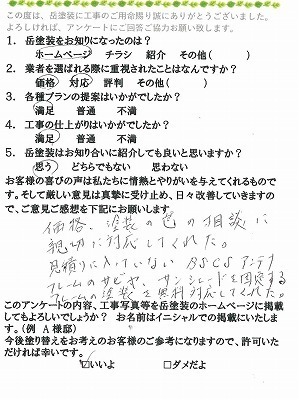 この度は、岳塗装に工事のご用命賜り誠にありがとうございました。
よろしければ、アンケートにご回答ご協力お願い致します。
1. 岳塗装をお知りになったのは？
ホームページ チラシ 紹介 その他( )
2. 業者を選ばれる際に重視されたことはなんですか？
価格 対応 評判 その他( )
3. 各種プランの提案はいかがでしたか？
満足 普通 不満
4. 工事の仕上がりはいかがでしたか？
満足 普通 不満
5. 岳塗装はお知り合いに紹介しても良いと思いますか？
思う どちらでもない 思わない
お客様の喜びの声は私たちに情熱とやりがいを与えてくれるものです。
そして厳しい意見は真摯に受け止め、日々改善していきますので、
ご意見ご感想を下記にお願いします。
価格、塗装の色の相談に
親切に対応してくれた。
見積りに入っていないBSCSアンテナ
フレームのサビや、サンシェードを固定する
フレームの塗装も無料対応してくれた。
このアンケートの内容、工事写真等を岳塗装のホームページに掲載
してもよろしいでしょうか？ お名前はイニシャルでの掲載にいたしま
す。(例 A様邸)
今後塗り替えをお考えのお客様のご参考になりますので、許可いた
だければ幸いです。
☑いいよ □ダメだよ